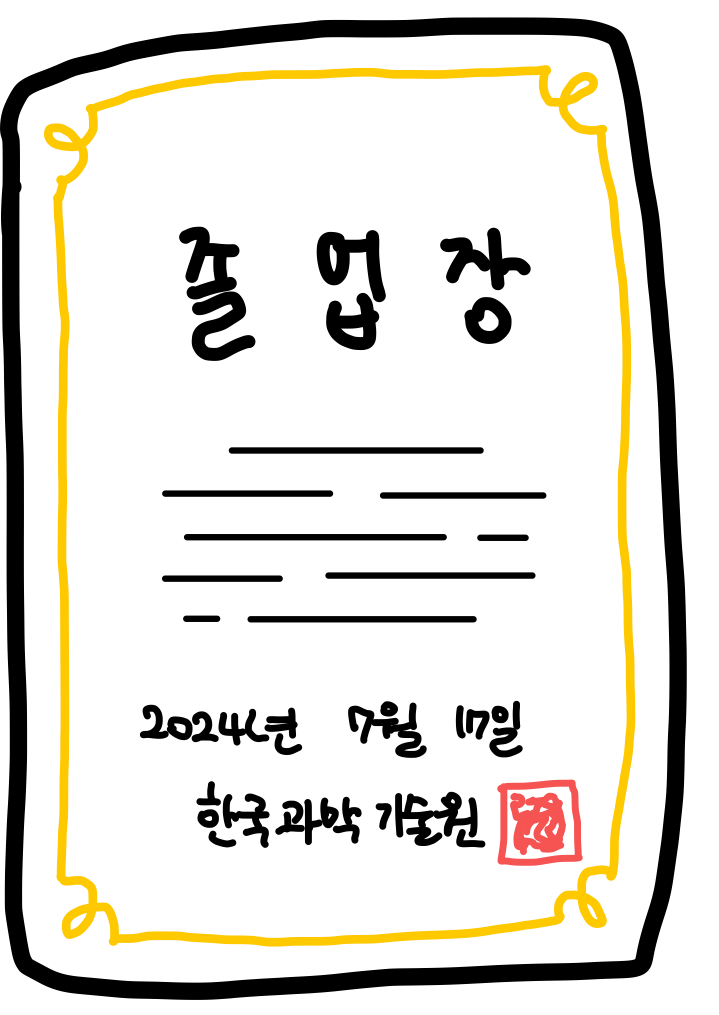 졸 업 장
2024년 7월 17일
한국과악 기술원